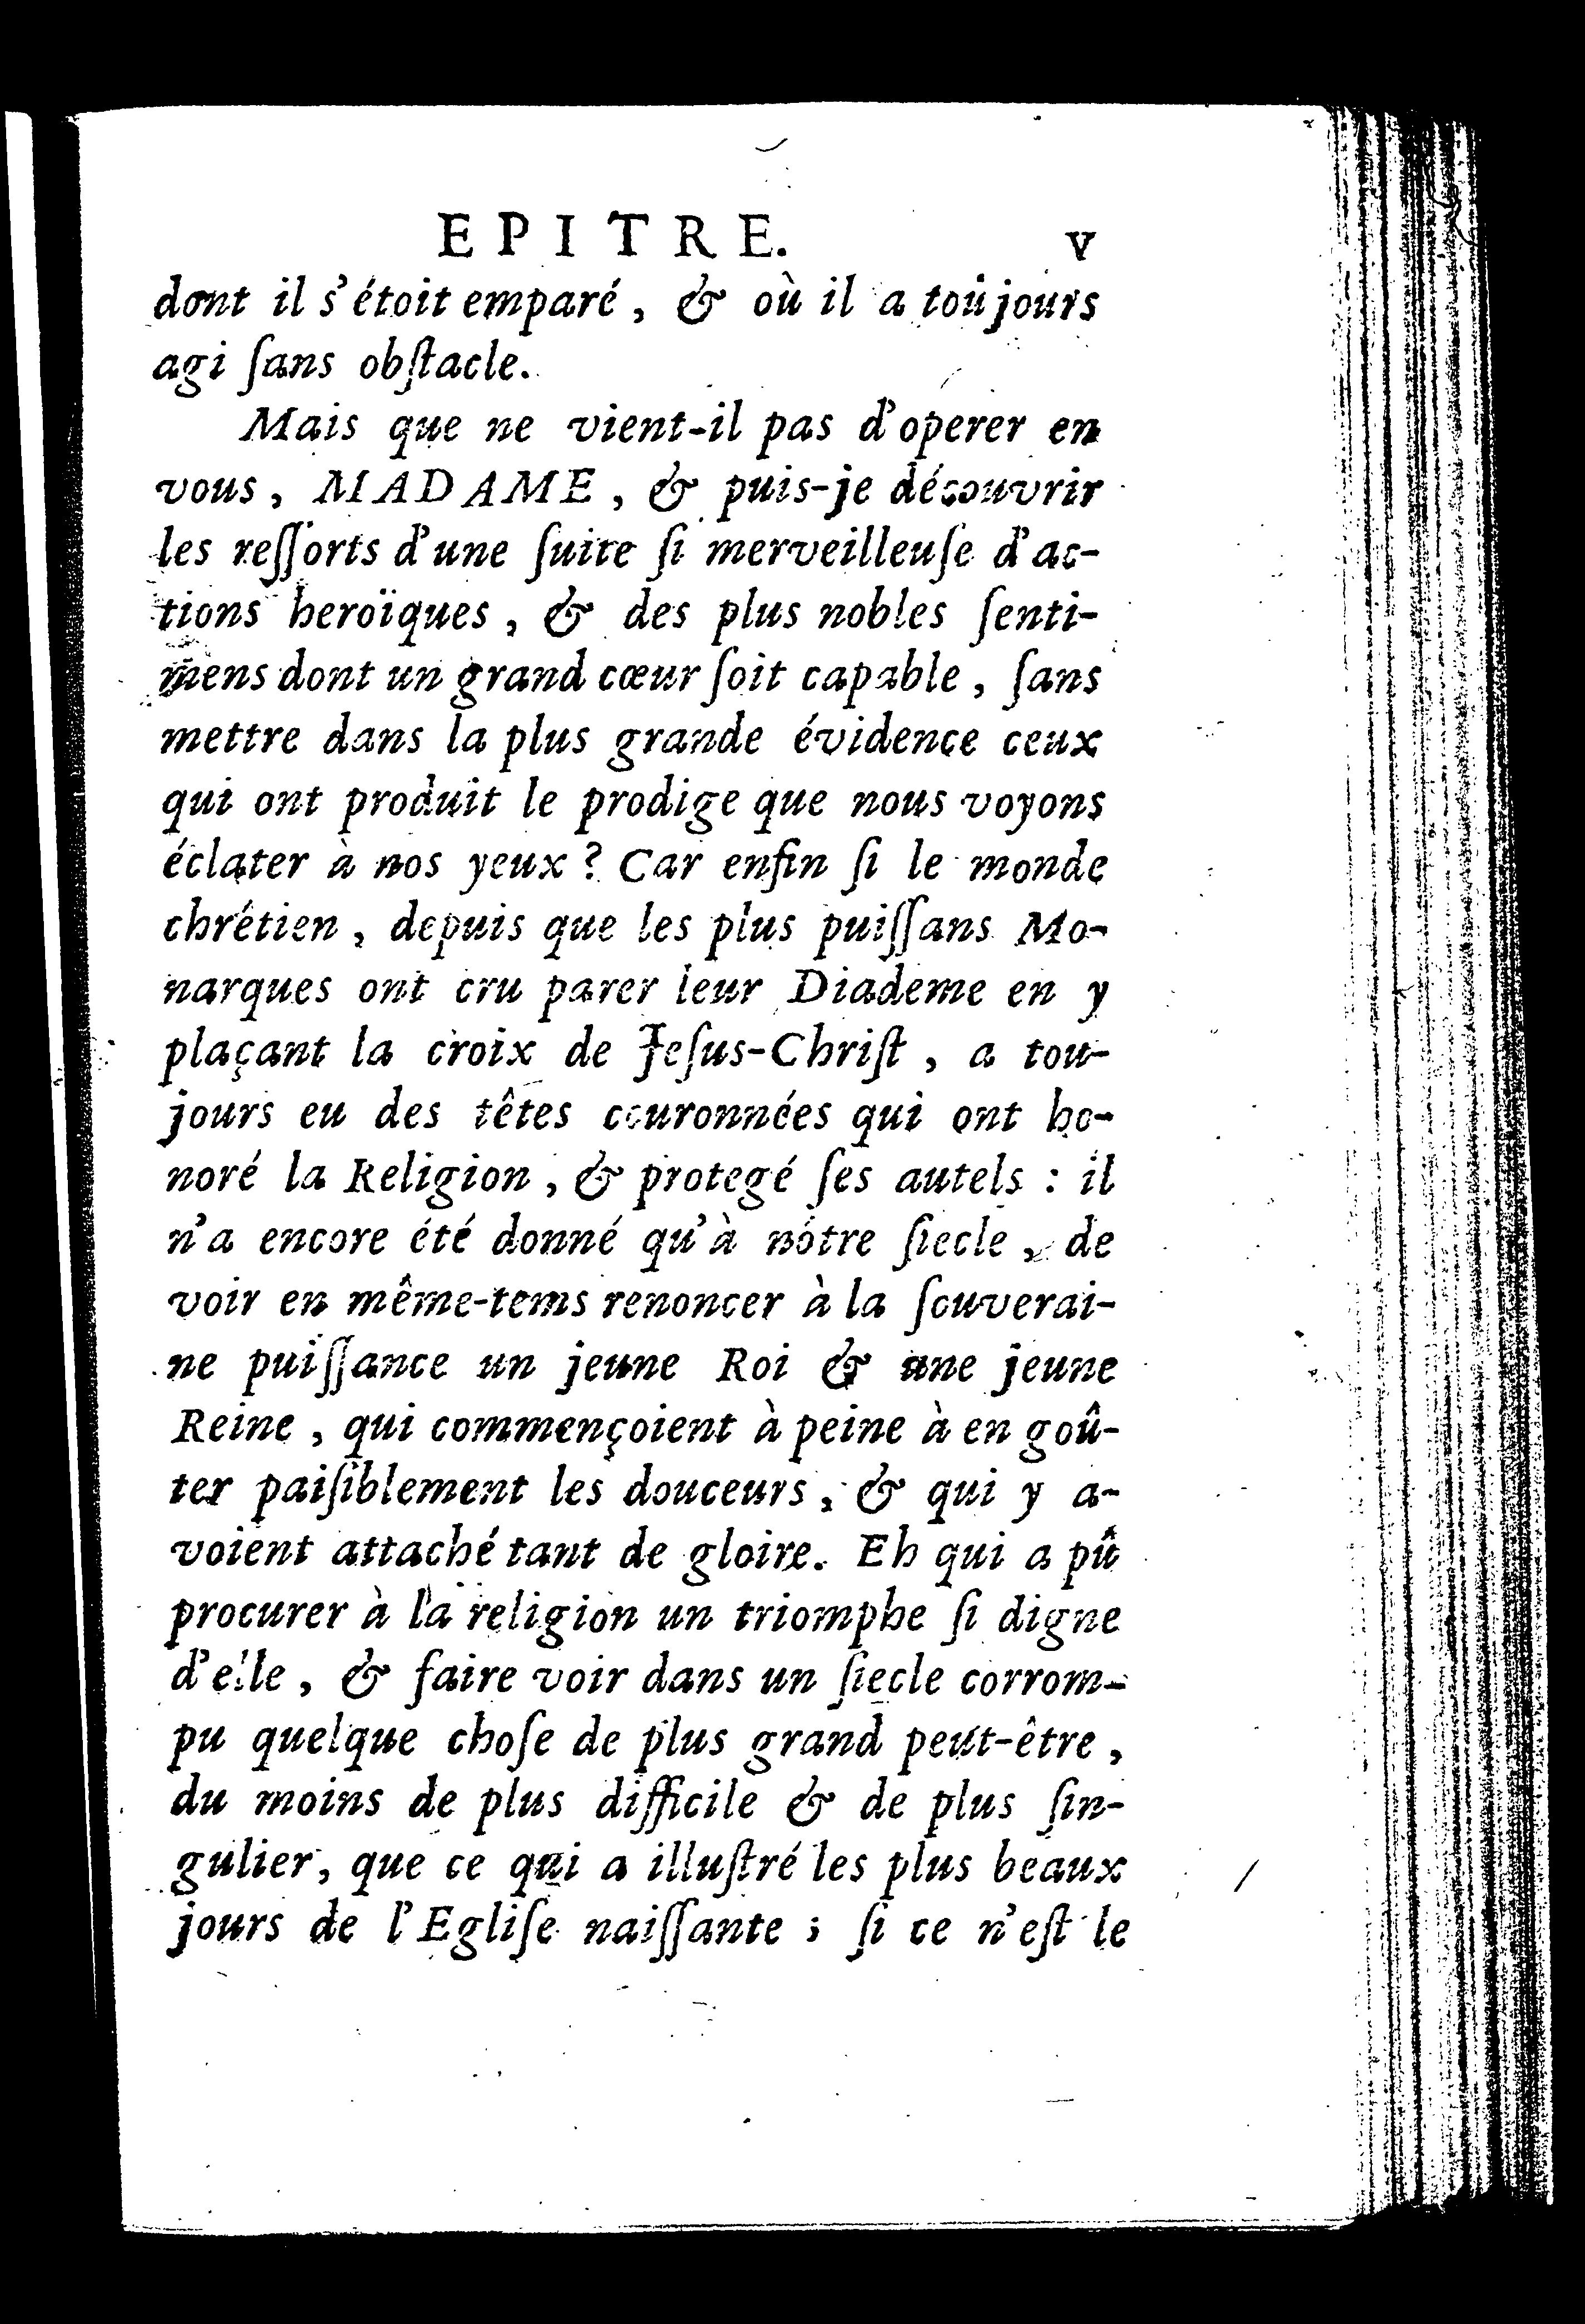 EPITRE. v
dont il s'étoit emparé, & où il a toûjours
agi ſans obſtacle.
Mais que ne vient-il pas d'operer en
vous, MADAME, & puis-je découvrir
les reſſorts d'une ſuite ſi merveilleuſe d'ac-
tions heroïques, & des plus nobles ſenti-
mens dont un grand cœur ſoit capable, ſans
mettre dans la plus grande évidence ceux
qui ont produit le prodige que nous voyons
éclater à nos yeux? Car enfin ſi le monde
chrétien, depuis que les plus puiſſans Mo-
narques ont cru parer leur Diademe en y
plaçant la croix de Jeſus-Chriſt, a tou-
jours eu des têtes couronnées qui ont ho-
noré la Religion, & protegé ſes autels : il
n'a encore été donné qu'à nôtre ſiecle, de
voir en même-tems renoncer à la ſouverai-
ne puiſſance un jeune Roi & une jeune
Reine, qui commençoient à peine à en goû-
ter paiſiblement les douceurs, & qui y a-
voient attaché tant de gloire. Eh qui a pû
procurer à la religion un triomphe ſi digne
d'elle, & faire voir dans un ſiecle corrom-
pu quelque choſe de plus grand peut-être,
du moins de plus difficile & de plus ſin-
gulier, que ce qui a illuſtré les plus beaux
jours de l'Egliſe naiſſante ; ſi ce n'eſt le